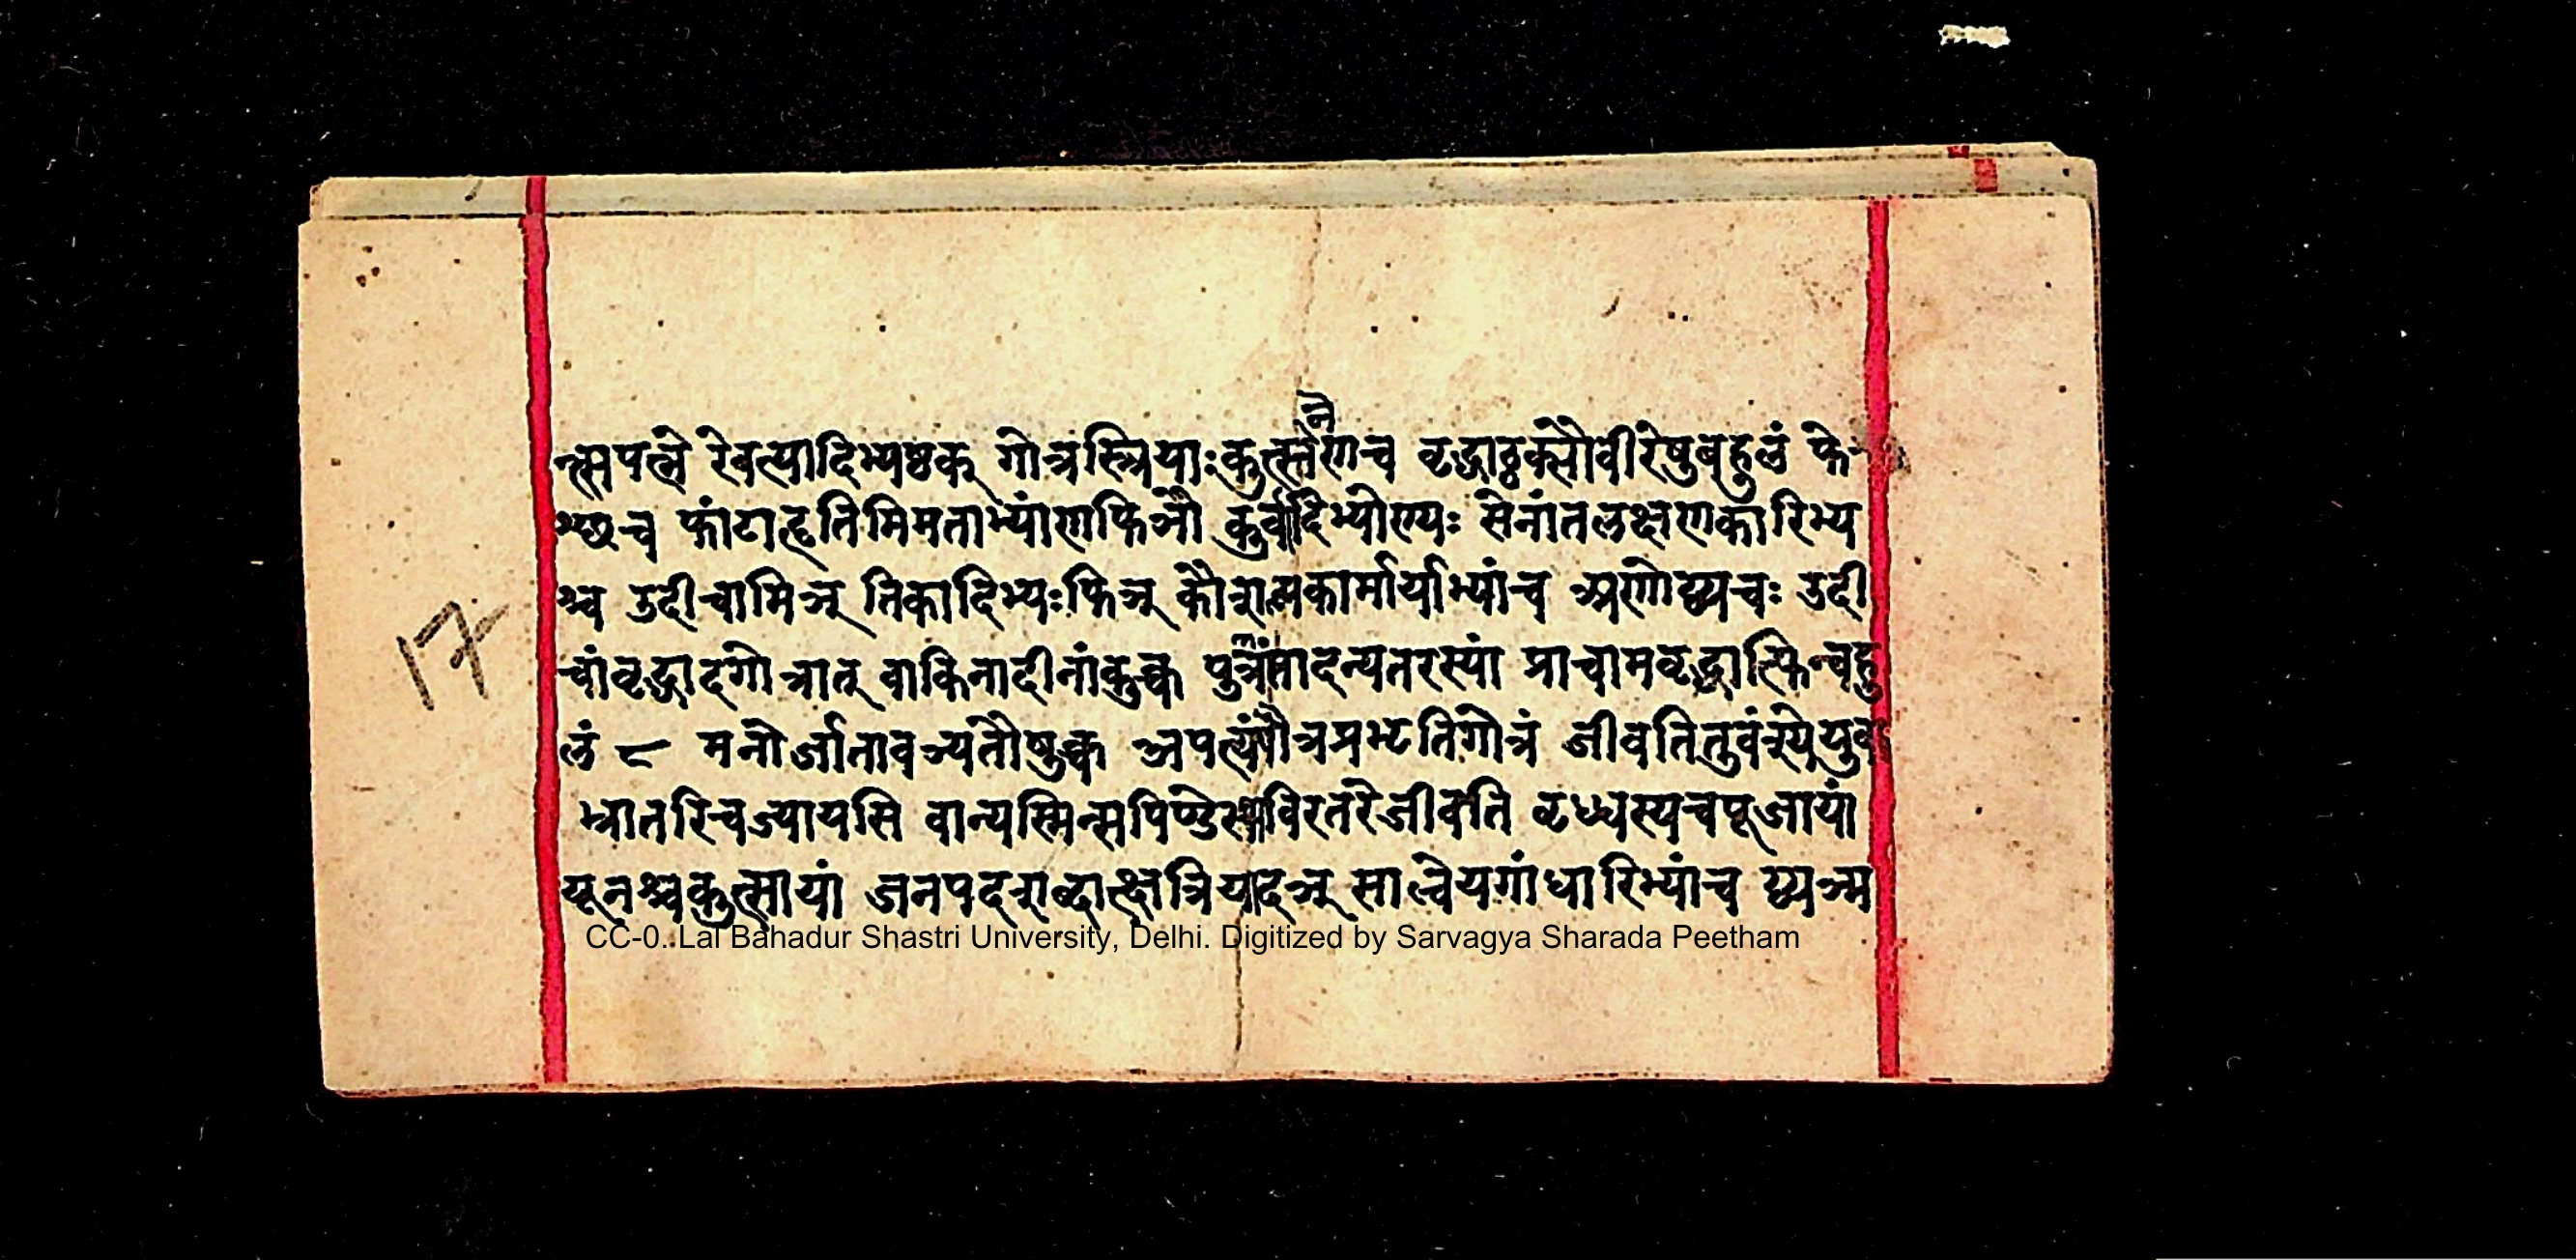 नै
न्त्सपत्ने रेवत्यादिभ्यष्ठक् गोत्रस्त्रियाःकुत्स्तेणच वृद्धाठ्ठक्सौवीरेषुबहुलं फे
श्छच फांटाहृतिमिमताभ्यांणफिञौ कुर्वादिभ्योण्यः सेनांतलक्षणकारिभ्य
श्च उदीचामिञ् तिकादिभ्यःफिञ् कौशल्यकार्मार्याभ्यांच अणोद्व्यचः उदी
चांवृद्धादगोत्रात् वाकिनादीनांकुक्च पुत्रांतादन्यतरस्यां प्राचामवृद्धात्फिन्बहु
लं ८ मनोर्जातावञ्यतौषुक्च अपत्यंपौत्रप्रभृतिगोत्रं जीवतितुवंश्येयुवा
भ्रातरिचज्यायसि वान्यस्मिन्सपिण्डेस्थविरतरेजीवति वृध्धस्यचपूजायां
यूनश्चकुत्सायां जनपदशब्दात्क्षत्रियादञ् साल्वेयगांधारिभ्यांच द्व्यञ्म
17
CC-0. Lal Bahadur Shastri University, Delhi. Digitized by Sarvagya Sharada Peetham